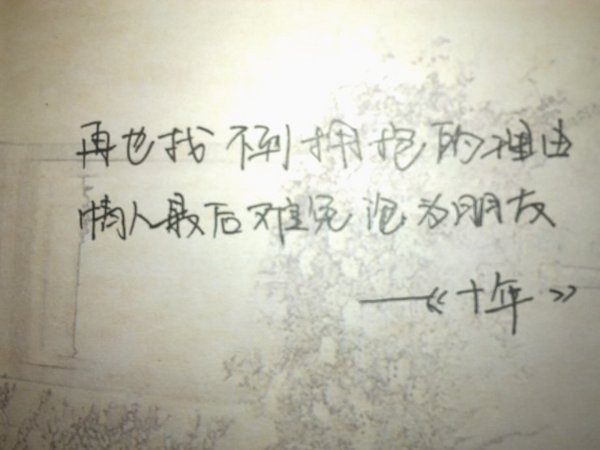 再也找不到拥抱的理由
情人最后难免沦为朋友
——《十年》